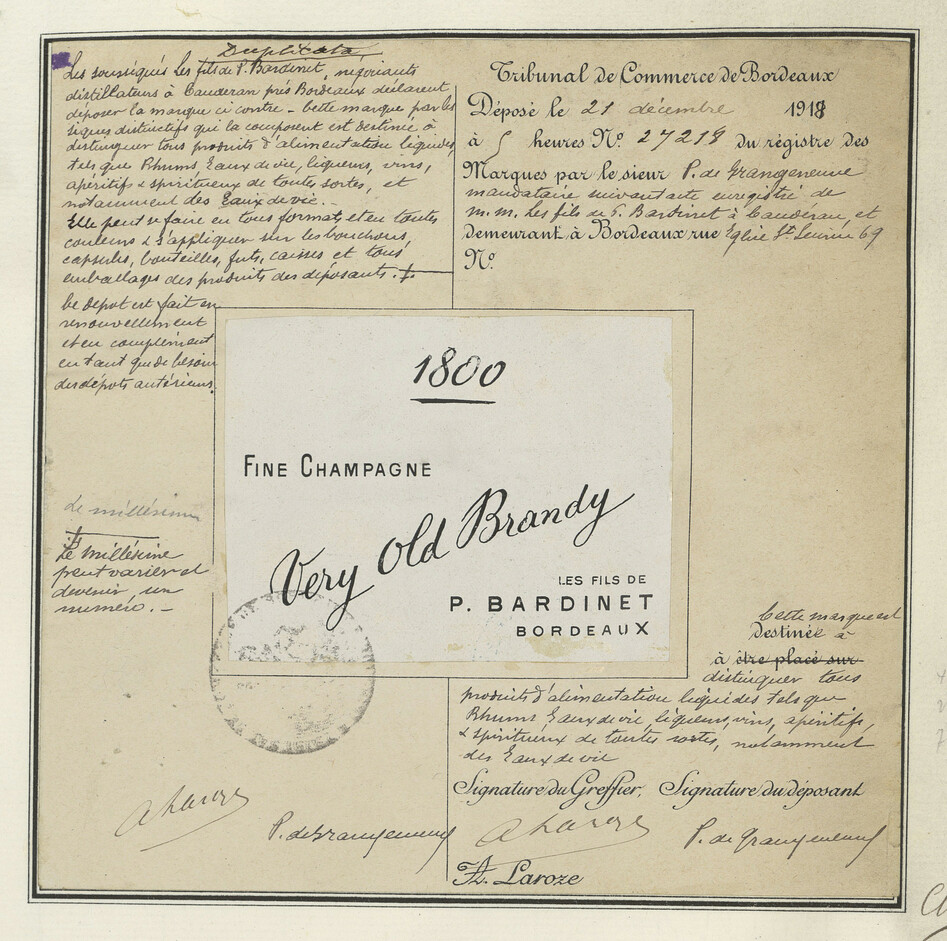 Duplicata
Les soussignés Les fils de P. Bardinet, négociants
distillateurs à Caudéran près Bordeaux déclarent
déposer la marque ci contre - Cette marque par les
signes distinctifs qui la composent est destinée à
distinguer tous produits d'alimentation liquides,
tels que Rhums, Eaux de vie, liqueurs, vins,
apéritifs & spiritueux de toutes sortes, et
notamment des Eaux de vie. -
Elle peut se faire en tous formats et en toutes
couleurs & s'appliquer sur les bouchons,
capsules, bouteilles, fûts, caisses et tous
emballages des produits des déposants.
Ce dépôt est fait en
renouvellement
et en complément
en tant que de besoin
des dépôts antérieurs.
Le millésime
Le millésime
peut varier et
devenir un
numéro. -
Tribunal de Commerce de Bordeaux
Déposé le 21 décembre 1918
à 5 heures No. 27218 du régistre des
Marques par le sieur P. de Grangeneuve
mandataire suivant acte enregistré de
M.M. Les fils de P. Bardinet à Caudéran, et
demeurant à Bordeaux rue Eglise St Seurin 69
No.
1800
FINE CHAMPAGNE
Very Old Brandy
LES FILS DE
P. BARDINET
BORDEAUX
Cette marque est
destinée à
à être placé sur
distinguer tous
produits d'alimentation liquides tels que
Rhums, Eaux de vie, liqueurs, vins, apéritifs,
& spiritueux de toutes sortes, notamment
des Eaux de vie
Signature du Greffier, Signature du déposant
P. de Grangeneuve
P. de Grangeneuve
Laroze